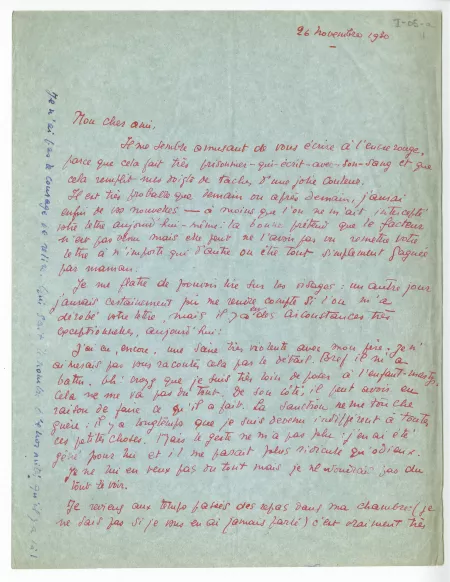 26 Novembre 1920
Mon cher ami,
Il me semble amusant de vous écrire à l'encre rouge,
parce que cela fait très prisonnier-qui-écrit-avec-son-sang et que
cela remplit mes doigts de taches d'une jolie couleur.
Il est très probable que demain ou après demain, j'aurai
enfin de vos nouvelles — à moins que l'on ne m'ait intercepté
votre lettre aujourd'hui-même. La bonne prétend que le facteur
n'est pas venu mais elle peut ne l'avoir pas vu remettre votre
lettre à n'importe qui d'autre ou être tout simplement gagnée
par maman.
Je me flatte de pouvoir lire sur les visages : un autre jour
j'aurais certainement pu me rendre compte si l'on m'a
dérobé votre lettre, mais il y a des circonstances très
exceptionnelles, aujourd'hui !
J'ai eu, encore, une scène très violente avec mon père. Je n'
aimerais pas vous raconter cela par le détail. Bref il m'a
battu. Oh ! voyez que je suis très loin de poser à l'enfant-martyr.
Cela ne me va pas du tout. De son côté, il peut avoir eu
raison de faire ce qu'il a fait. La sanction ne me touche
guère : il y a longtemps que je suis devenu indifférent à toutes
ces petites choses. Mais le geste ne m'a pas plu. J'en ai été
gêné pour lui et il me paraît plus ridicule qu'odieux.
Je ne lui en veux pas du tout mais je ne voudrais pas du
tout le voir.
Je reviens aux temps passés des repas dans ma chambre (je
ne sais pas si je vous en ai jamais parlé) c'est vraiment très
Je n'ai pas le courage de relire